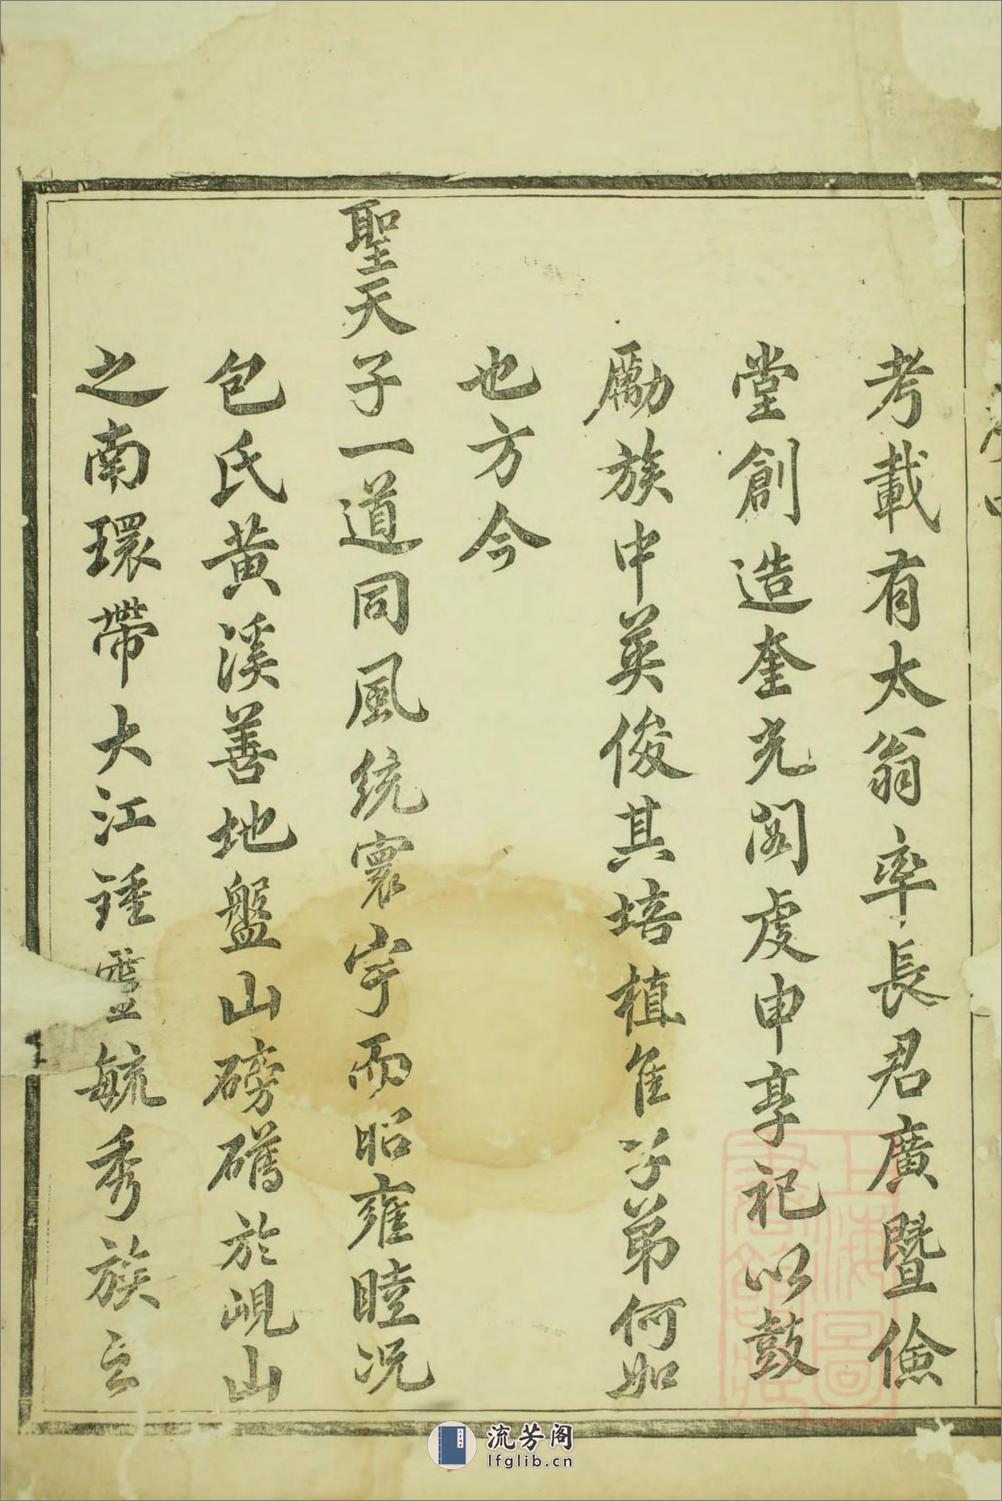 考載有太翁率長君廣暨儉
堂創造奎光閣虔申享祀以鼓
勵族中英俊其培植佳子弟何如
也方今
聖天子一道同風統寰宇而昭雍睦况
包氏黄溪善地盤山磅礴於峴山
之南環帶大江鍾靈毓秀族立
上海圖書館藏
流芳阁
lfglib.cn